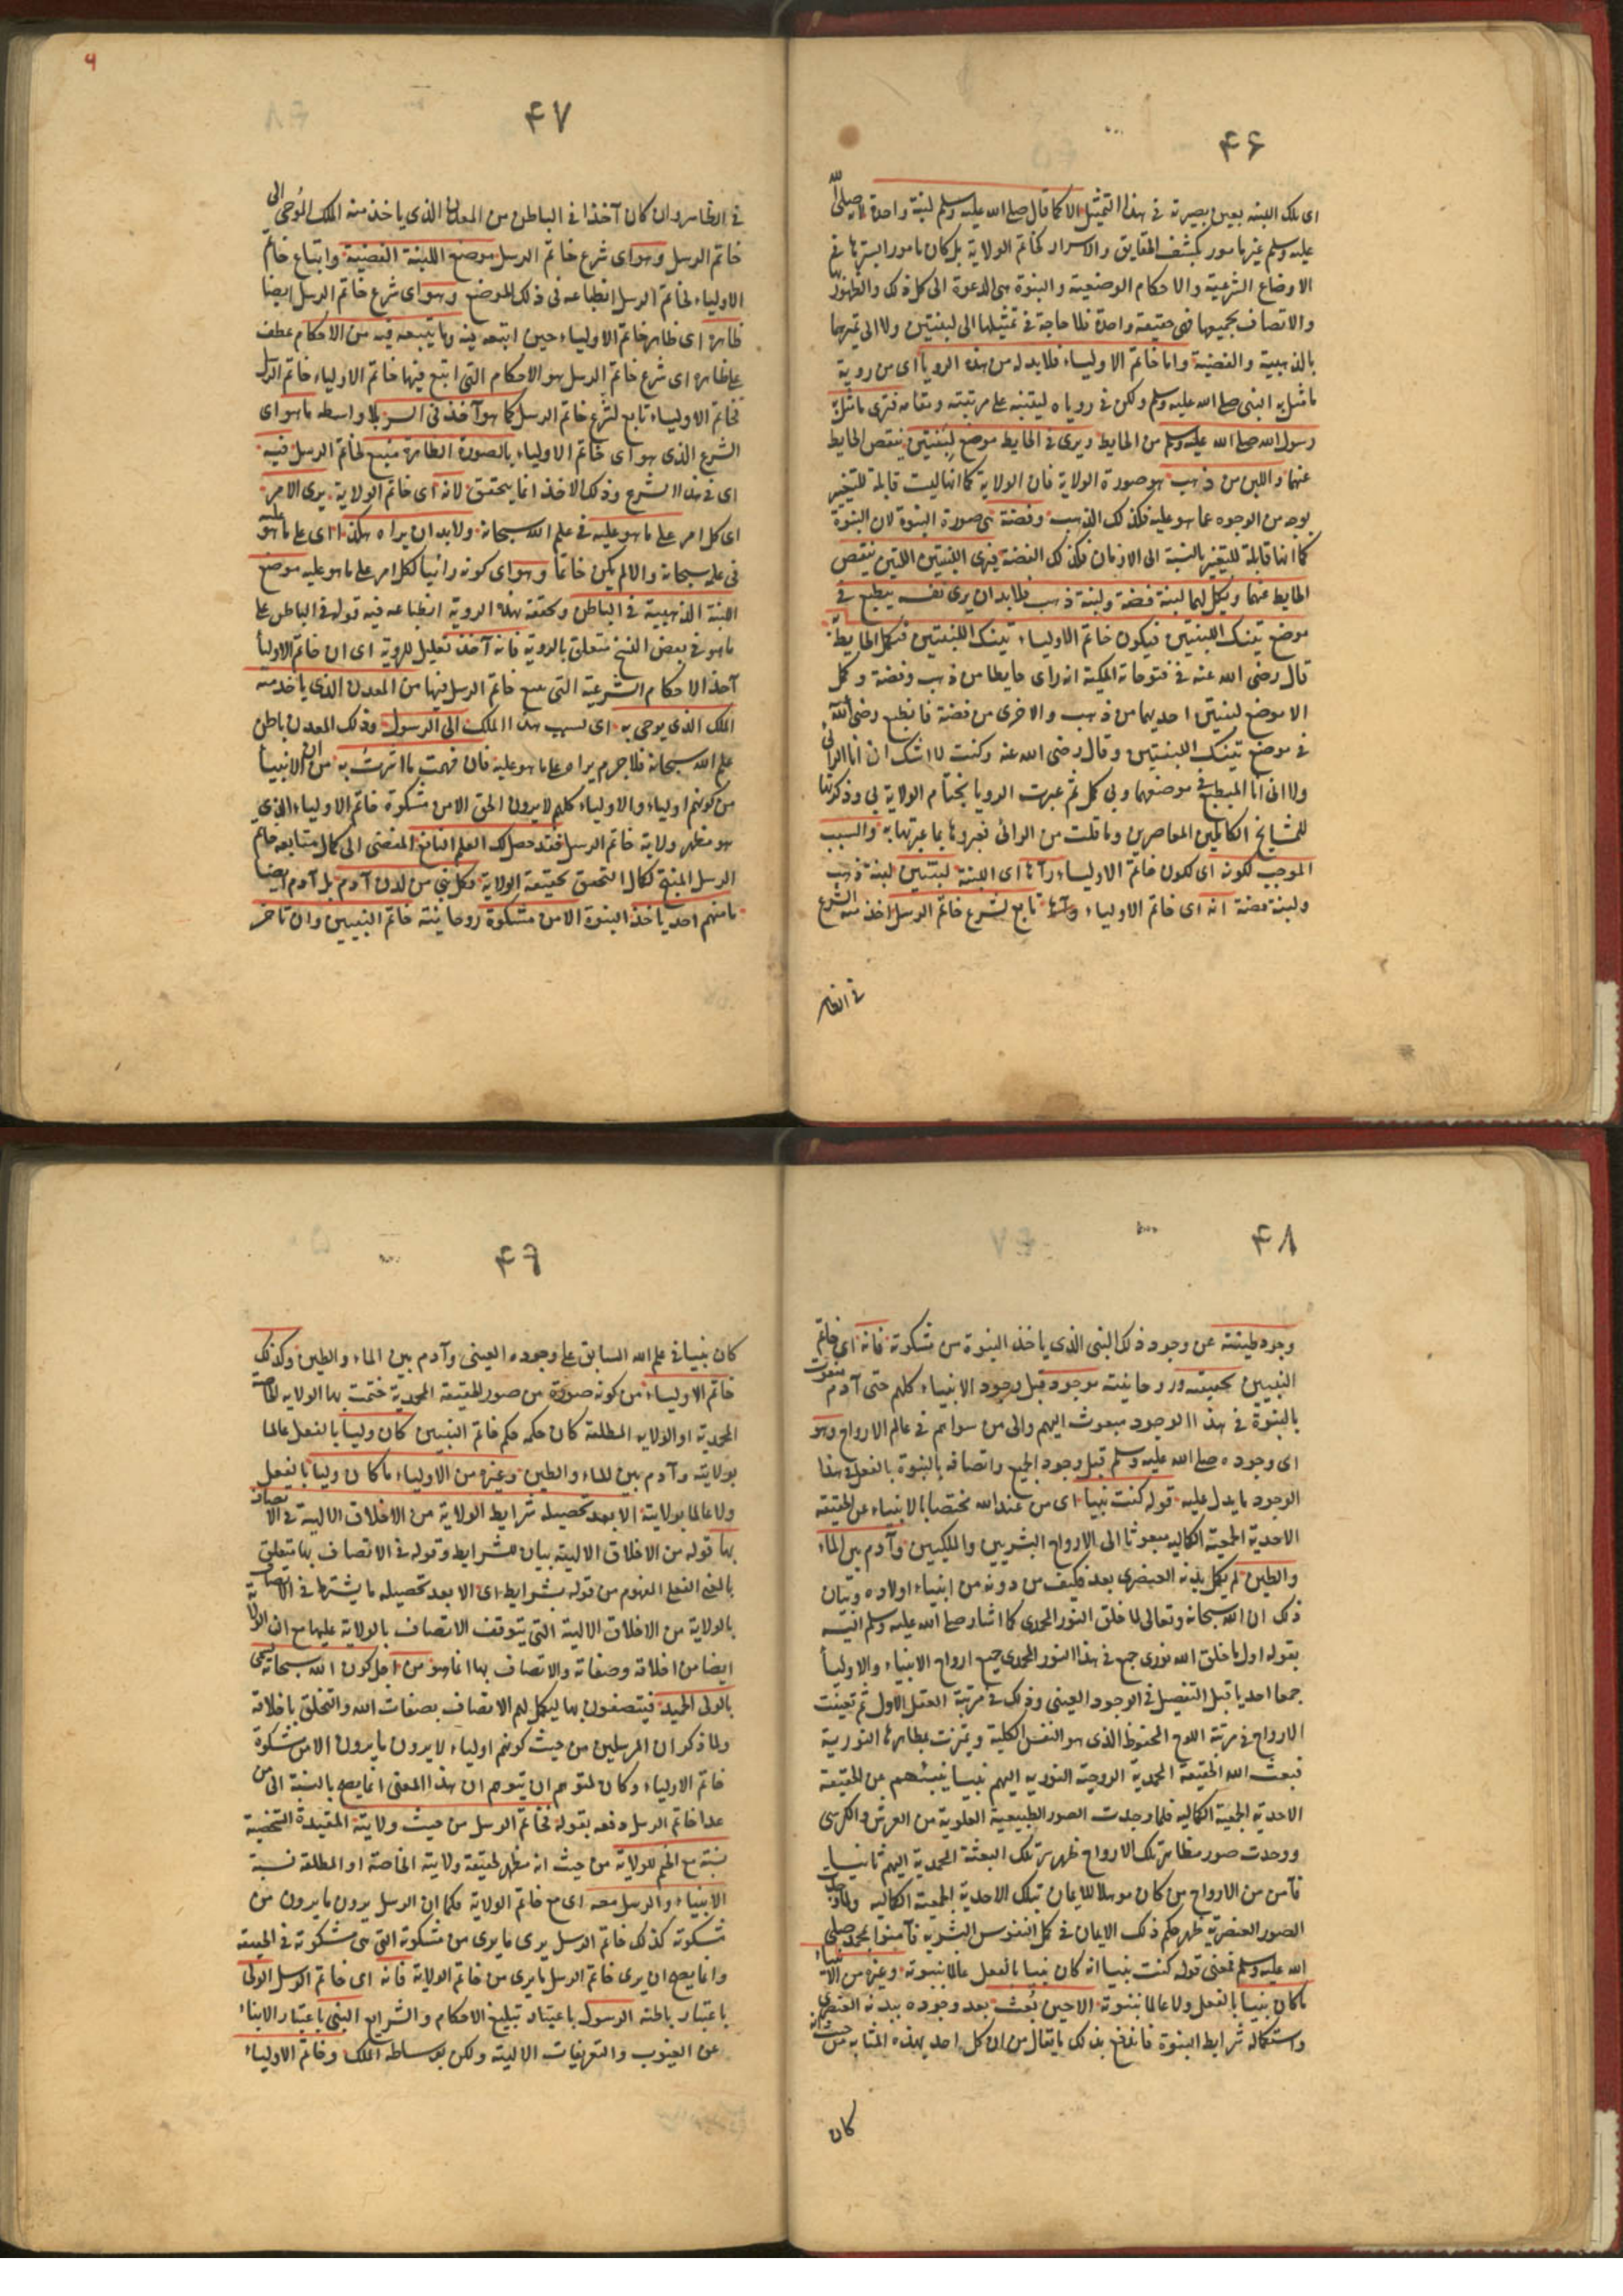 ۴۶
اى تلك اللبنة بعين بصيرته فى هذا التمثيل الا كما قال صلى الله عليه وسلم لبنة واحدة لانه صلى الله
عليه وسلم غير مامور بكشف الحقايق والاسرار كخاتم الولاية بل كان مامورا بسترها فى
الاوضاع الشرعية والاحكام الوضعية والنبوة هى الدعوة الى كل ذلك والظهور
والاتصاف بجميعها فهى حقيقة واحدة فلا حاجة فى تمثيلها الى لبنتين ولا الى تميزها
بالذهبية والفضية واما خاتم الاولياء فلا بد له من هذه الرويا اى من روية
ما مثل به النبى صلى الله عليه وسلم ولكن فى روياه ليتنبه على مرتبته ومقامه فيرى ما مثل به
رسول الله صلى الله عليه وسلم من الحايط ويرى فى الحايط موضع لبنتين ينقص الحايط
عنهما واللبن من ذهب هو صورة الولاية فان الولاية كما انها ليست قابلة للتغير
بوجه من الوجوه عما هو عليه فكذلك الذهب وفضة هى صورة النبوة لان النبوة
كما انها قابلة للتغير بالنسبة الى الازمان فكذلك الفضة فيرى اللبنتين اللتين ينقص
الحايط عنهما ويكمل بهما لبنة فضة ولبنة ذهب فلا بد ان يرى نفسه ينطبع فى
موضع تينك اللبنتين فيكون خاتم الاولياء تينك اللبنتين فيكمل الحايط
قال رضى الله عنه فى فتوحاته المكية انه راى حايطا من ذهب وفضة وكمل
الا موضع لبنتين احديهما من ذهب والاخرى من فضة فانطبع رضى الله عنه
فى موضع تينك اللبنتين وقال رضى الله عنه وكنت لا اشك ان انا الرائى
ولا انى انا المنطبع فى موضعهما وبى كمل ثم عبرت الرويا بختام الولاية بى وذكرتها
للمشايخ الكاملين المعاصرين وما قلت من الرائى فعبروها بما عبرتها به والسبب
الموجب لكونه اى لكون خاتم الاولياء رآها اى اللبنة لبنتين لبنة ذهب
ولبنة فضة انه اى خاتم الاولياء تابع لشرع خاتم الرسل اخذ منه الشرع
فى الظاهر
۴۷
فى الظاهر وان كان آخذا فى الباطن من المعدن الذى ياخذ منه الملك الموحى الى
خاتم الرسل وهو اى شرع خاتم الرسل موضع اللبنة الفضية واتباع خاتم
الاولياء لخاتم الرسل انطباعه فى ذلك الموضع وهو اى شرع خاتم الرسل ايضا
ظاهره اى ظاهر خاتم الاولياء حين اتبعه فيه وما يتبعه فيه من الاحكام عطف
على ظاهره اى شرع خاتم الرسل هو الاحكام التى اتبع فيها خاتم الاولياء خاتم الرسل
فخاتم الاولياء تابع لشرع خاتم الرسل كما هو آخذ فى السر بلا واسطه ما هو اى
الشرع الذى هو اى خاتم الاولياء بالصورة الظاهرة متبع لخاتم الرسل فيه
اى فى هذا الشرع وذلك الاخذ انما يتحقق لانه اى خاتم الولاية يرى الامر
اى كل امر على ما هو عليه فى علم الله سبحانه ولا بد ان يراه هكذا اى على ما هو عليه
فى علمه سبحانه والا لم يكن خاتما وهو اى كونه رائيا لكل امر على ما هو عليه موضع
اللبنة الذهبية فى الباطن وتحققه بهذه الروية انطباعه فيه قوله فى الباطن على
ما هو فى بعض النسخ متعلق بالروية فانه آخذ تعليل للروية اى ان خاتم الاوليا
آخذ الاحكام الشرعية التى تبع خاتم الرسل فيها من المعدن الذى ياخذ منه
الملك الذى يوحى به اى بسبب هذا الملك الى الرسول وذلك المعدن باطن
علم الله سبحانه فلا جرم يراه على ما هو عليه فان فهمت ما اشرت به من ان الانبيا
من كونهم اولياء والاولياء كلهم لا يرون الحق الا من مشكوة خاتم الاولياء الذى
هو مظهر ولاية خاتم الرسل فقد حصل لك العلم النافع المفضى الى كمال متابعه خاتم
الرسل المنتج لكمال التحقق بحقيقة الولاية فكل نبى من لدن آدم بل آدم ايضا
ما منهم احد ياخذ النبوة الا من مشكوة روحانية خاتم النبيين وان تاخر
۴۸
وجود طينته عن وجود ذلك النبى الذى ياخذ النبوة من مشكوته فانه اى خاتم
النبيين بحقيقته وروحانيته موجود قبل وجود الانبياء كلهم حتى آدم منعوت
بالنبوة فى هذا الوجود مبعوث اليهم والى من سواهم فى عالم الارواح وهو
اى وجوده صلى الله عليه وسلم قبل وجود الجميع واتصافه بالنبوة بالفعل فى هذا
الوجود ما يدل عليه قوله كنت نبيا اى من عند الله مختصا بالانبياء عن الحقيقة
الاحدية الجمعية الكمالية مبعوثا الى الارواح البشريين والملكيين وآدم بين الماء
والطين لم يكمل بدنه العنصرى بعد فكيف من دونه من انبياء اولاده وبيان
ذلك ان الله سبحانه وتعالى لما خلق النور المحمدى كما اشار صلى الله عليه وسلم اليه
بقوله اول ما خلق الله نورى جمع فى هذا النور المحمدى جميع ارواح الانبياء والاوليا
جمعا احديا قبل التفصيل فى الوجود العينى وذلك فى مرتبة العقل الاول ثم تعينت
الارواح فى مرتبة اللوح المحفوظ الذى هو النفس الكلية وتميزت بمظاهرها النورية
فبعث الله الحقيقة المحمدية الروحية النورية اليهم نبيا ينبئهم عن الحقيقة
الاحدية الجمعية الكمالية فلما وجدت الصور الطبيعية العلوية من العرش والكرسى
ووجدت صور مظاهر تلك الارواح ظهر سر تلك البعثة المحمدية اليهم ثانيا
فآمن من الارواح من كان موهلا للايمان بتلك الاحدية الجمعية الكمالية ولما وجدت
الصور العنصرية ظهر حكم ذلك الايمان فى كل النفوس البشرية فآمنوا بمحمد صلى
الله عليه وسلم فمعنى قوله كنت نبيا انه كان نبيا بالفعل عالما بنبوته وغيره من الانبياء
ما كان نبيا بالفعل ولا عالما بنبوته الا حين بُعث بعد وجوده ببدنه العنصرى
واستكماله شرايط النبوة فاندفع بذلك ما يقال من ان كل احد بهذه المثابة من حيث انه
كان
۴۹
كان نبيا فى علم الله السابق على وجوده العينى وآدم بين الماء والطين وكذلك
خاتم الاولياء من كونه صورة من صور الحقيقة المحمدية ختمت بها الولاية الخاصة
المحمدية او الولاية المطلقة كان حكمه حكم خاتم النبيين كان وليا بالفعل عالما
بولايته وآدم بين الماء والطين وغيره من الاولياء ما كان وليا بالفعل
ولا عالما بولايته الا بعد تحصيله شرايط الولاية من الاخلاق الالهية فى الاتصاف
بها قوله من الاخلاق الالهية بيان للشرايط وقوله فى الاتصاف بها متعلق
بالمعنى الفعلى المفهوم من قوله بشرايط اى الا بعد تحصيله ما يشترط فى الاتصاف
بالولاية من الاخلاق الالهية التى يتوقف الاتصاف بالولاية عليها مع ان الولاية
ايضا من اخلاقه وصفاته والاتصاف بها انما هو من اجل كون الله سبحانه تسمى
بالولى الحميد فيتصفون بها ليكمل لهم الاتصاف بصفات الله والتخلق باخلاقه
ولما ذكر ان المرسلين من حيث كونهم اولياء لا يرون ما يرون الا من مشكوة
خاتم الاولياء وكان لمتوهم ان يتوهم ان هذا المعنى انما يصح بالنسبة الى من
عدا خاتم الرسل دفعه بقوله فخاتم الرسل من حيث ولايته المقيدة الشخصية
نسبته مع الختم للولاية من حيث انه مظهر لحقيقة ولايته الخاصة او المطلقة نسبة
الانبياء والرسل معه اى مع خاتم الولاية فكما ان الرسل يرون ما يرون من
مشكوته كذلك خاتم الرسل يرى ما يرى من مشكوته التى هى مشكوته فى الحقيقة
وانما يصح ان يرى خاتم الرسل ما يرى من خاتم الولاية فانه اى خاتم الرسل الولى
باعتبار باطنه الرسول باعتبار تبليغ الاحكام والشرايع النبى باعتبار الانباء
عن الغيوب والتعريفات الالهية ولكن بوساطة الملك وخاتم الاولياء